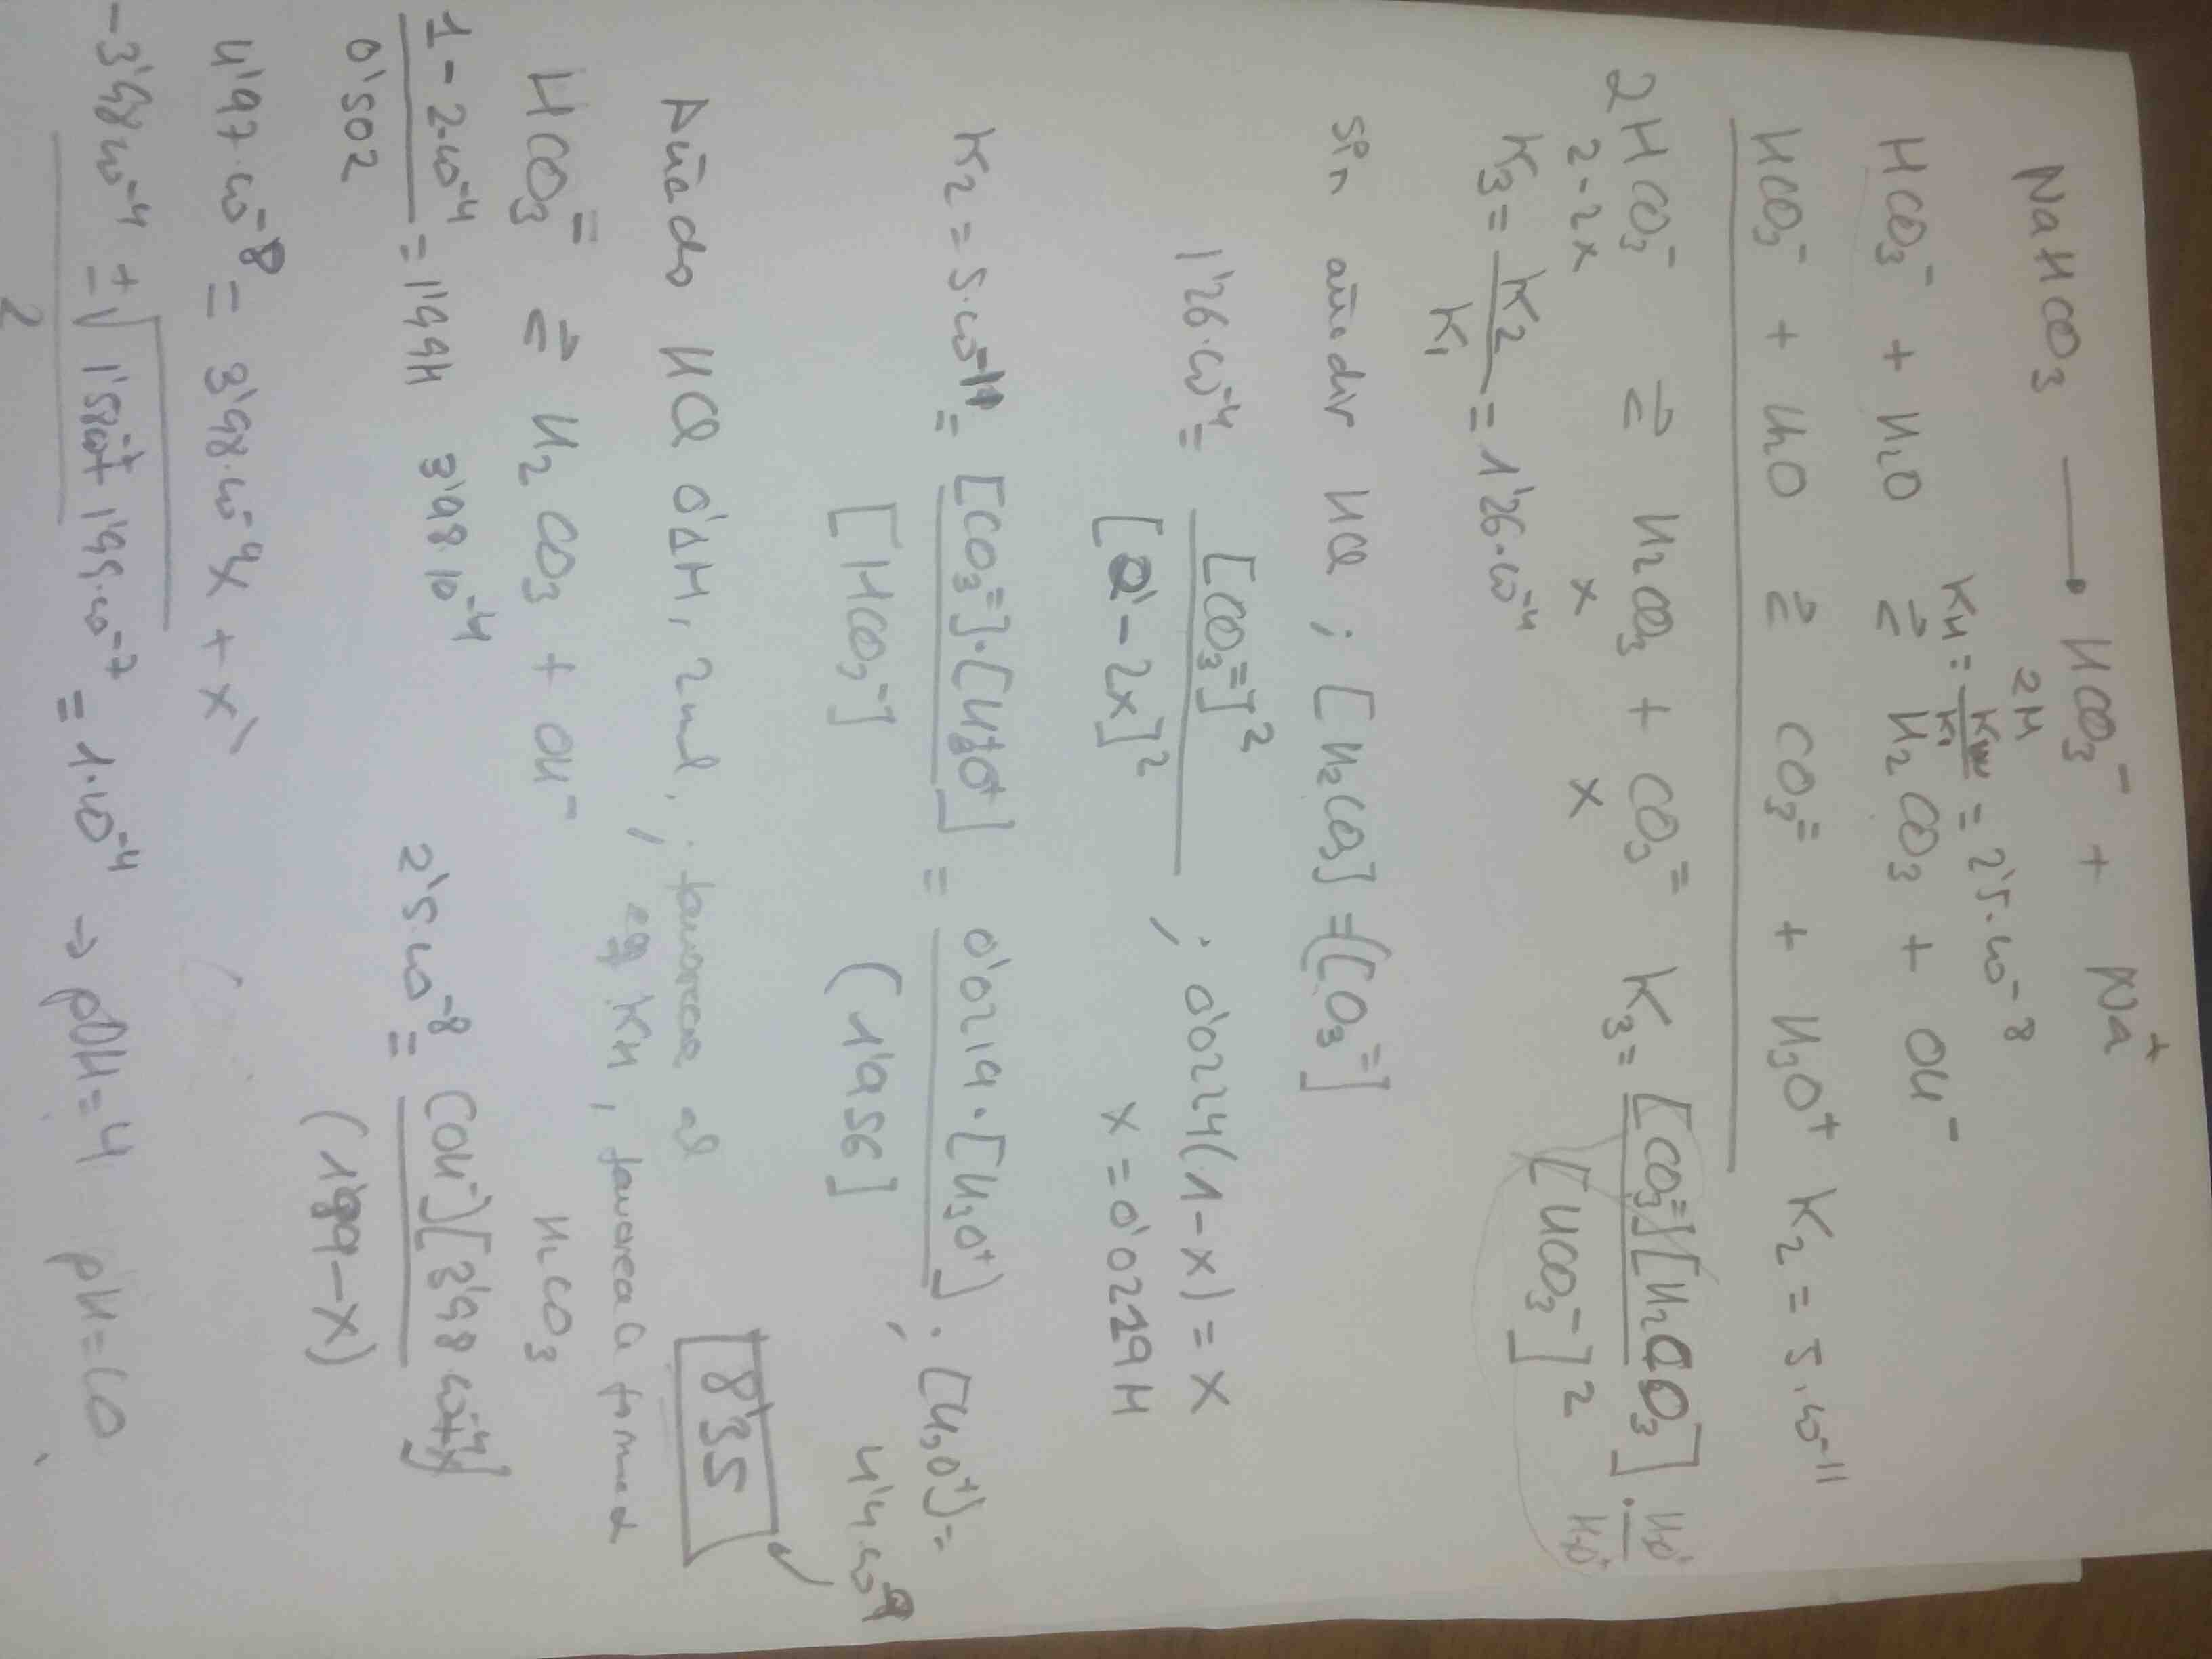 NaHCO₃ ⟶ HCO₃⁻ + Na⁺
2M
KH = Kw/K₁ = 2'5·10⁻⁸
HCO₃⁻ + H₂O ⇌ H₂CO₃ + OH⁻
HCO₃⁻ + H₂O ⇌ CO₃⁼ + H₃O⁺ K₂ = 5·10⁻¹¹
2HCO₃⁻ ⇌ H₂CO₃ + CO₃⁼ K₃ = [CO₃⁼][H₂CO₃]/[HCO₃⁻]² · H₃O⁺/H₃O⁺
2-2x x x
K₃ = K₂/K₁ = 1'26·10⁻⁴
sin añadir HCl ; [H₂CO₃] = [CO₃⁼]
1'26·10⁻⁴ = [CO₃⁼]²/[2-2x]² ; 0'0224(1-x) = x
x = 0'0219 M
K₂ = 5·10⁻¹¹ = [CO₃⁼]·[H₃O⁺]/[HCO₃⁻] = 0'0219·[H₃O⁺]/(1'956] ; [H₃O⁺] =
4'4·10⁻⁹
8'35
Añado HCl 0'1M, 2ml, favorece el
eq KH, favorece a forma
HCO₃⁻ ⇌ H₂CO₃ + OH⁻ H₂CO₃
1-2·10⁻⁴/0'502 = 1'99M 3'98·10⁻⁴ 2'5·10⁻⁸ = (OH⁻)[3'98·10⁻⁴+x]/(1'99-x)
4'97·10⁻⁸ = 3'98·10⁻⁴x + x²
-3'98·10⁻⁴ ± √1'58·10⁻⁷ + 1'95·10⁻⁷/2 = 1·10⁻⁴ → pOH = 4 pH = 10